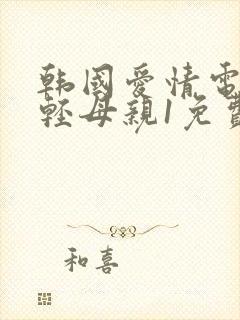 韩國愛情電
輕母親1免費
和喜